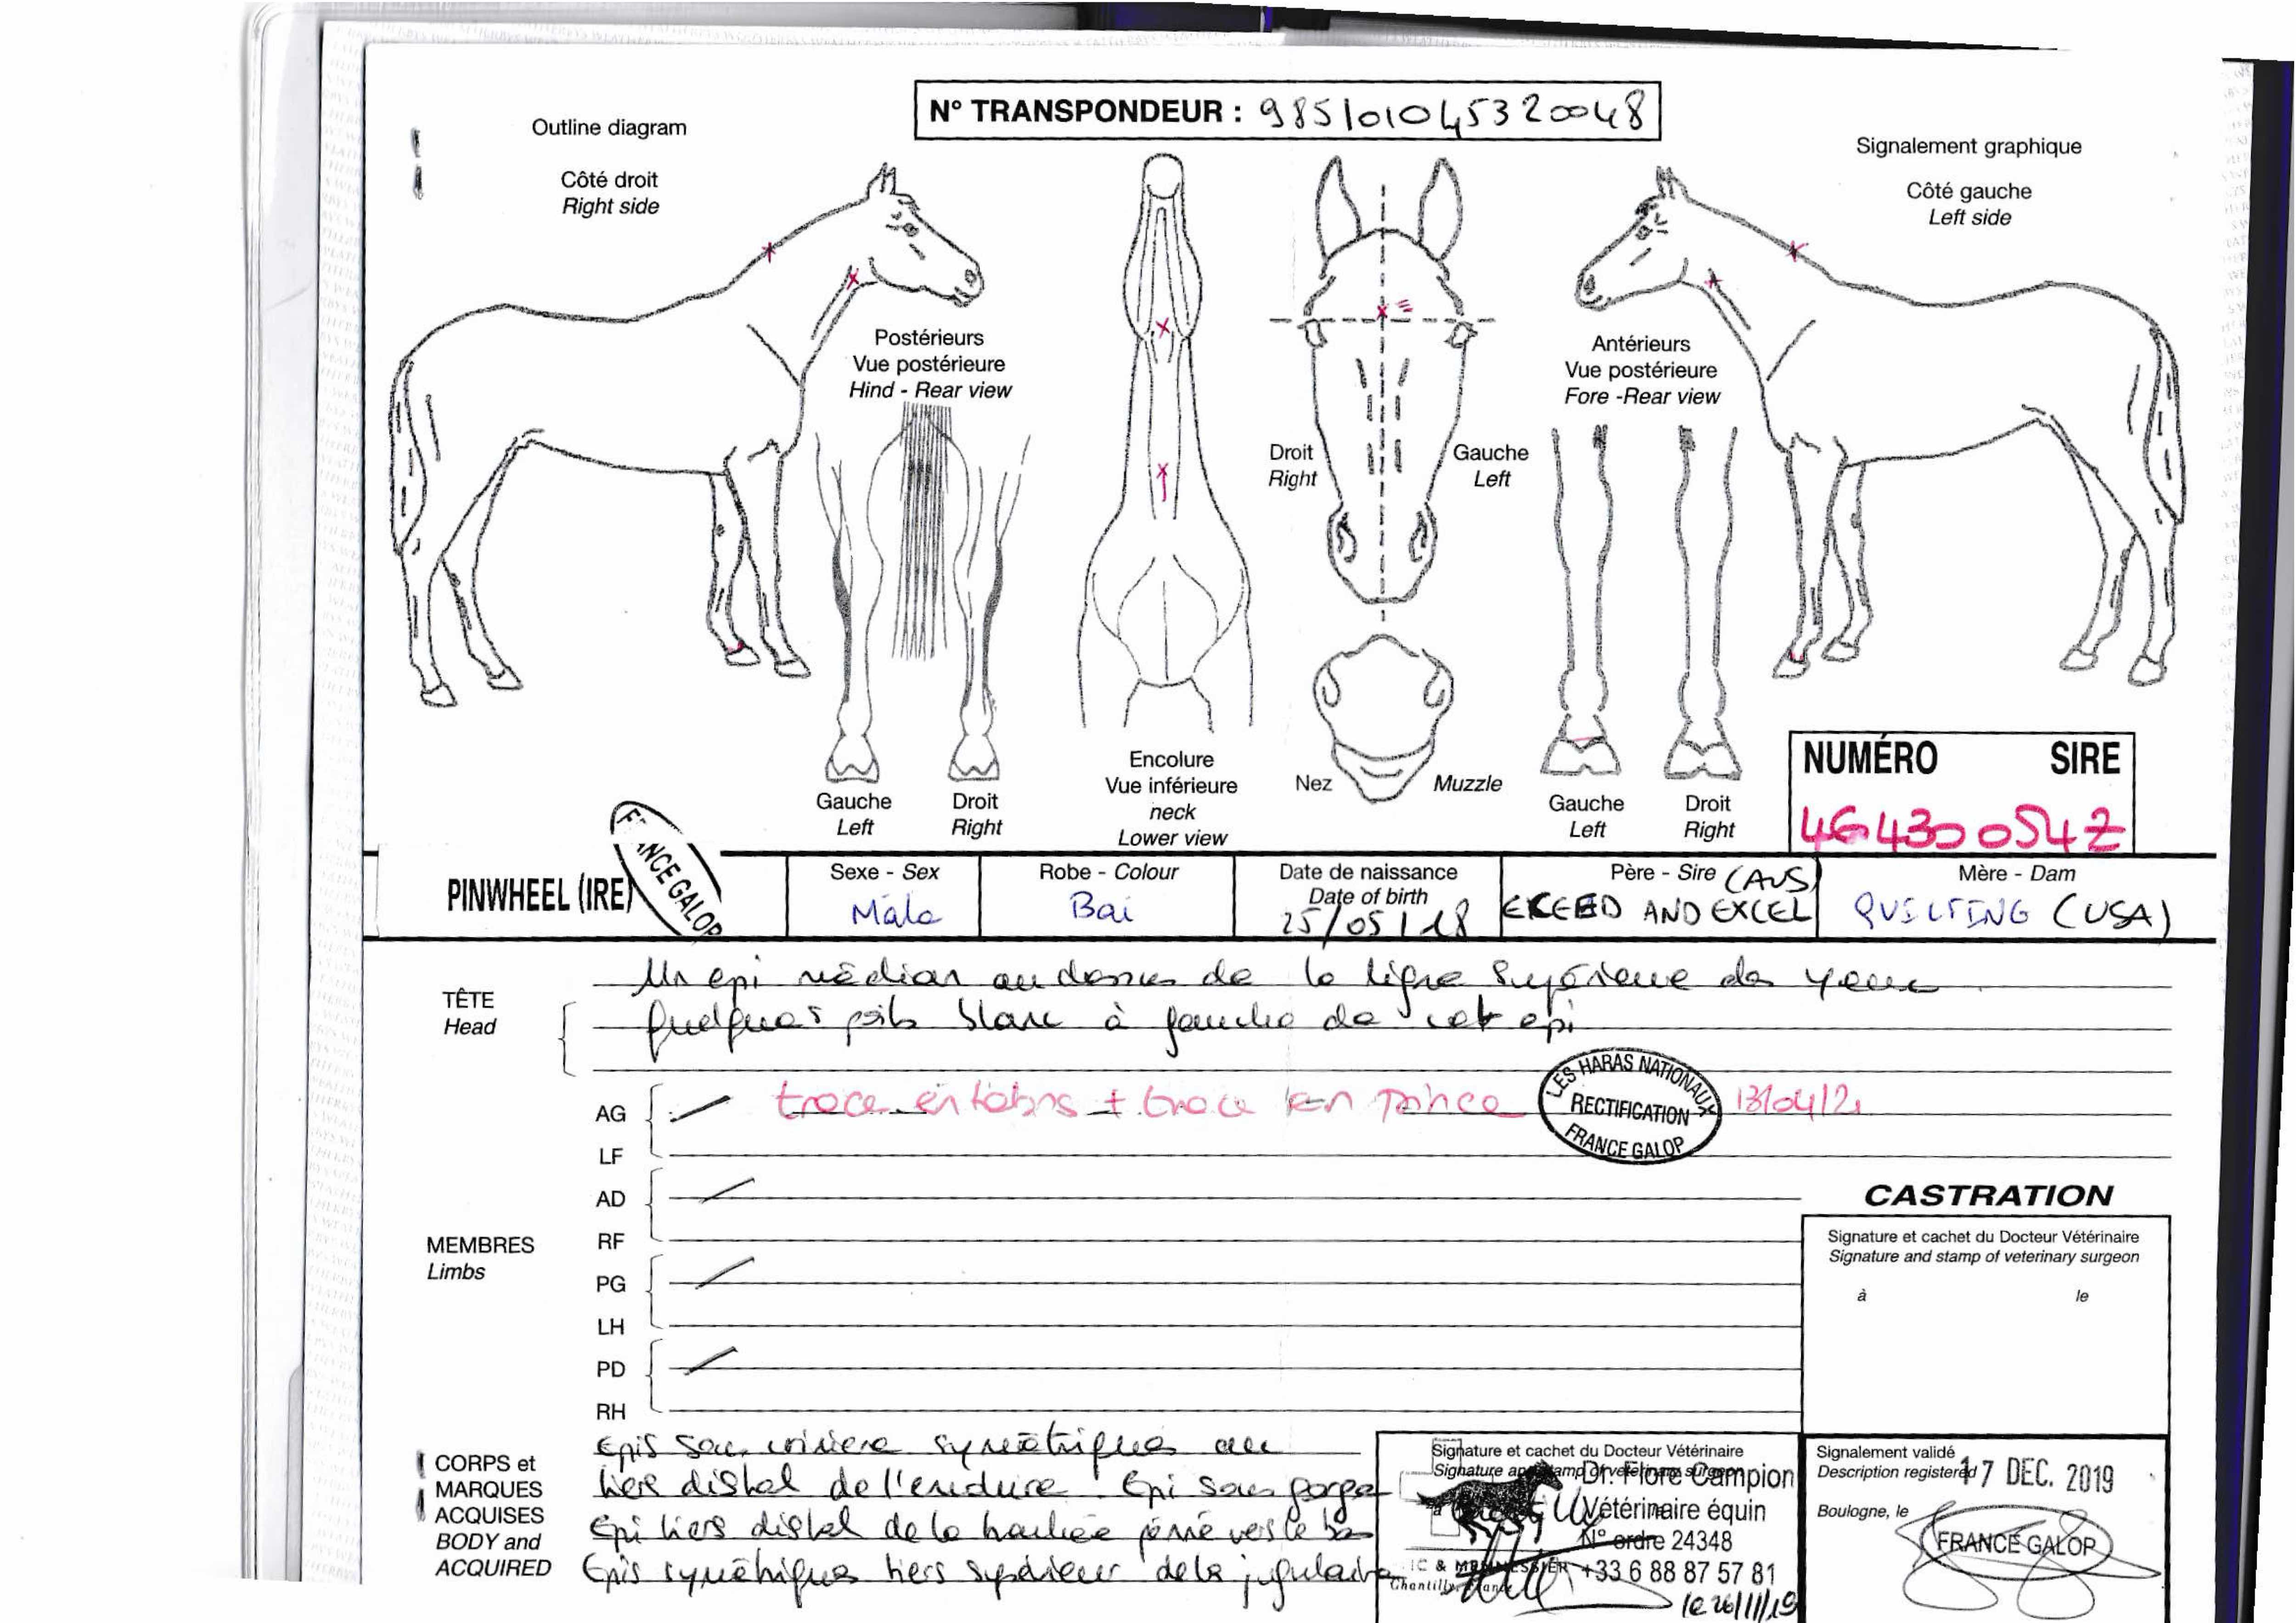 N° TRANSPONDEUR : 985101045320048
Outline diagram
Signalement graphique
Côté droit
Right side
Côté gauche
Left side
Postérieurs
Vue postérieure
Hind - Rear view
Antérieurs
Vue postérieure
Fore -Rear view
Droit
Right
Gauche
Left
Encolure
Vue inférieure
neck
Lower view
Nez
Muzzle
Gauche
Left
Droit
Right
Gauche
Left
Droit
Right
NUMÉRO SIRE
PINWHEEL (IRE)
FRANCE GALOP
Sexe - Sex
Mâle
Robe - Colour
Bai
Date de naissance
Date of birth
25/05/18
Père - Sire (AUS)
EXCEED AND EXCEL
Mère - Dam
QUILTING (USA)
TÊTE
Head
Un epi médian au dessus de la ligne Supérieure des yeux
quelques poils blanc à gauche de cet epi
AG
trace en talons + trace en pince
LES HARAS NATIONAUX
RECTIFICATION
FRANCE GALOP
13/04/21
LF
AD
RF
MEMBRES
Limbs
PG
LH
PD
RH
CASTRATION
Signature et cachet du Docteur Vétérinaire
Signature and stamp of veterinary surgeon
à le
CORPS et
MARQUES
ACQUISES
BODY and
ACQUIRED
Epis sous crinière symétriques au
tiers distal de l'encolure. Epi sous gorge
Epi tiers distal de la trachée penné vers le bas
Epis symétriques tiers supérieur de la jugulaire
Signature et cachet du Docteur Vétérinaire
Signature and stamp of veterinary surgeon
Dr. Flore Campion
Vétérinaire équin
N° ordre 24348
+33 6 88 87 57 81
Chantilly, France
le 26/11/19
Signalement validé
Description registered
17 DEC. 2019
Boulogne, le
FRANCE GALOP